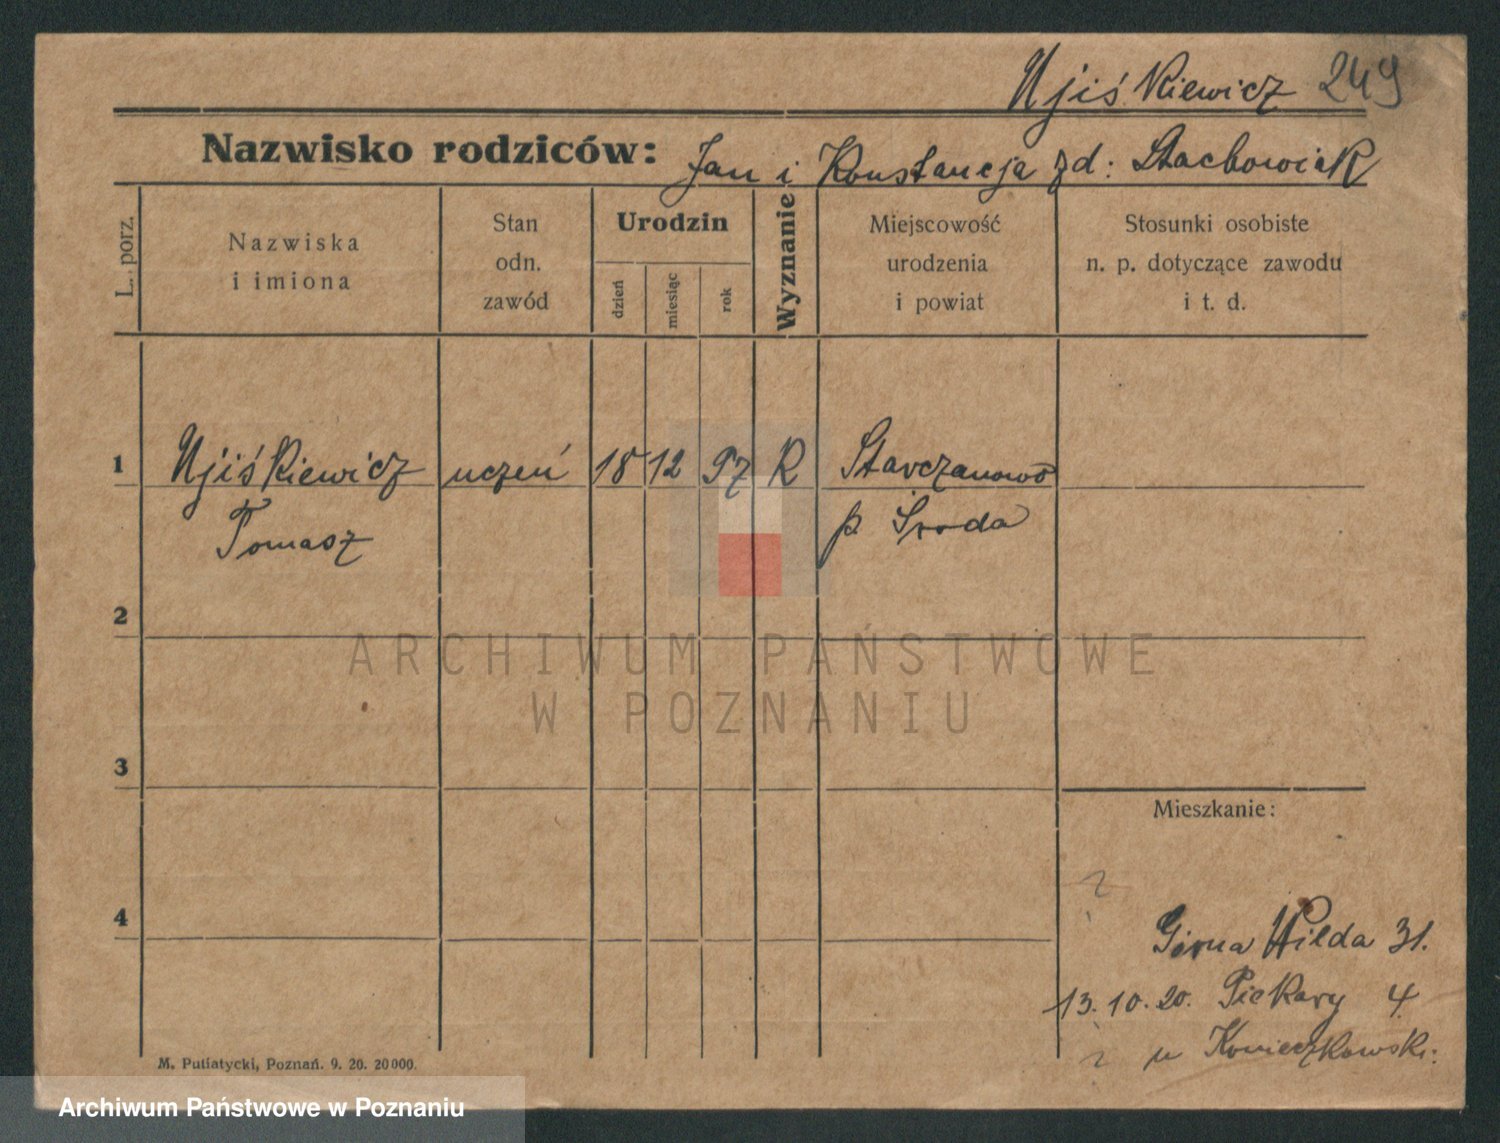 Ujiśkiewicz 249
Nazwisko rodziców: Jan i Konstancja zd: Stachowiak
L. porz.
Nazwiska
i imiona
Stan
odn.
zawód
Urodzin
dzień
miesiąc
rok
Wyznanie
Miejscowość
urodzenia
i powiat
Stosunki osobiste
n. p. dotyczące zawodu
i t. d.
1 Ujiśkiewicz uczeń 18 12 97 R Starczanowo
Tomasz p. Środa
2
ARCHIWUM PAŃSTWOWE
W POZNANIU
3
Mieszkanie:
?
4
Górna Wilda 31.
13.10.20. Piekary 4
? u Konieczkowski.
M. Putiatycki, Poznań. 9. 20. 20000.
Archiwum Państwowe w Poznaniu